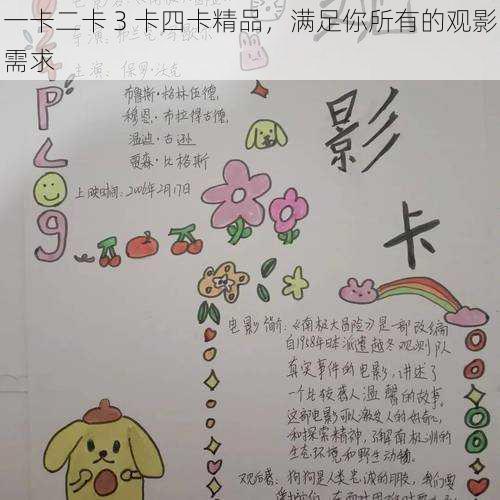 一卡二卡 3 卡四卡精品，满足你所有的观影
需求
主演：保罗·沃克
布鲁斯·格林伍德,
穆恩·布拉得古德,
温迪·古逊
贾森·比格斯
上映时间：2006年2月17日
PLOg
影
卡
电影简介：《南极大冒险》是一部改编
自1958年日本派遣越冬观测队
真实事件的电影，讲述了
一个比较感人温馨的故事。
这部电影可以激发人的好奇心
和探索精神，了解南极洲的
生态环境和野生动物。
观后感：狗狗是人类忠诚的朋友，我们要